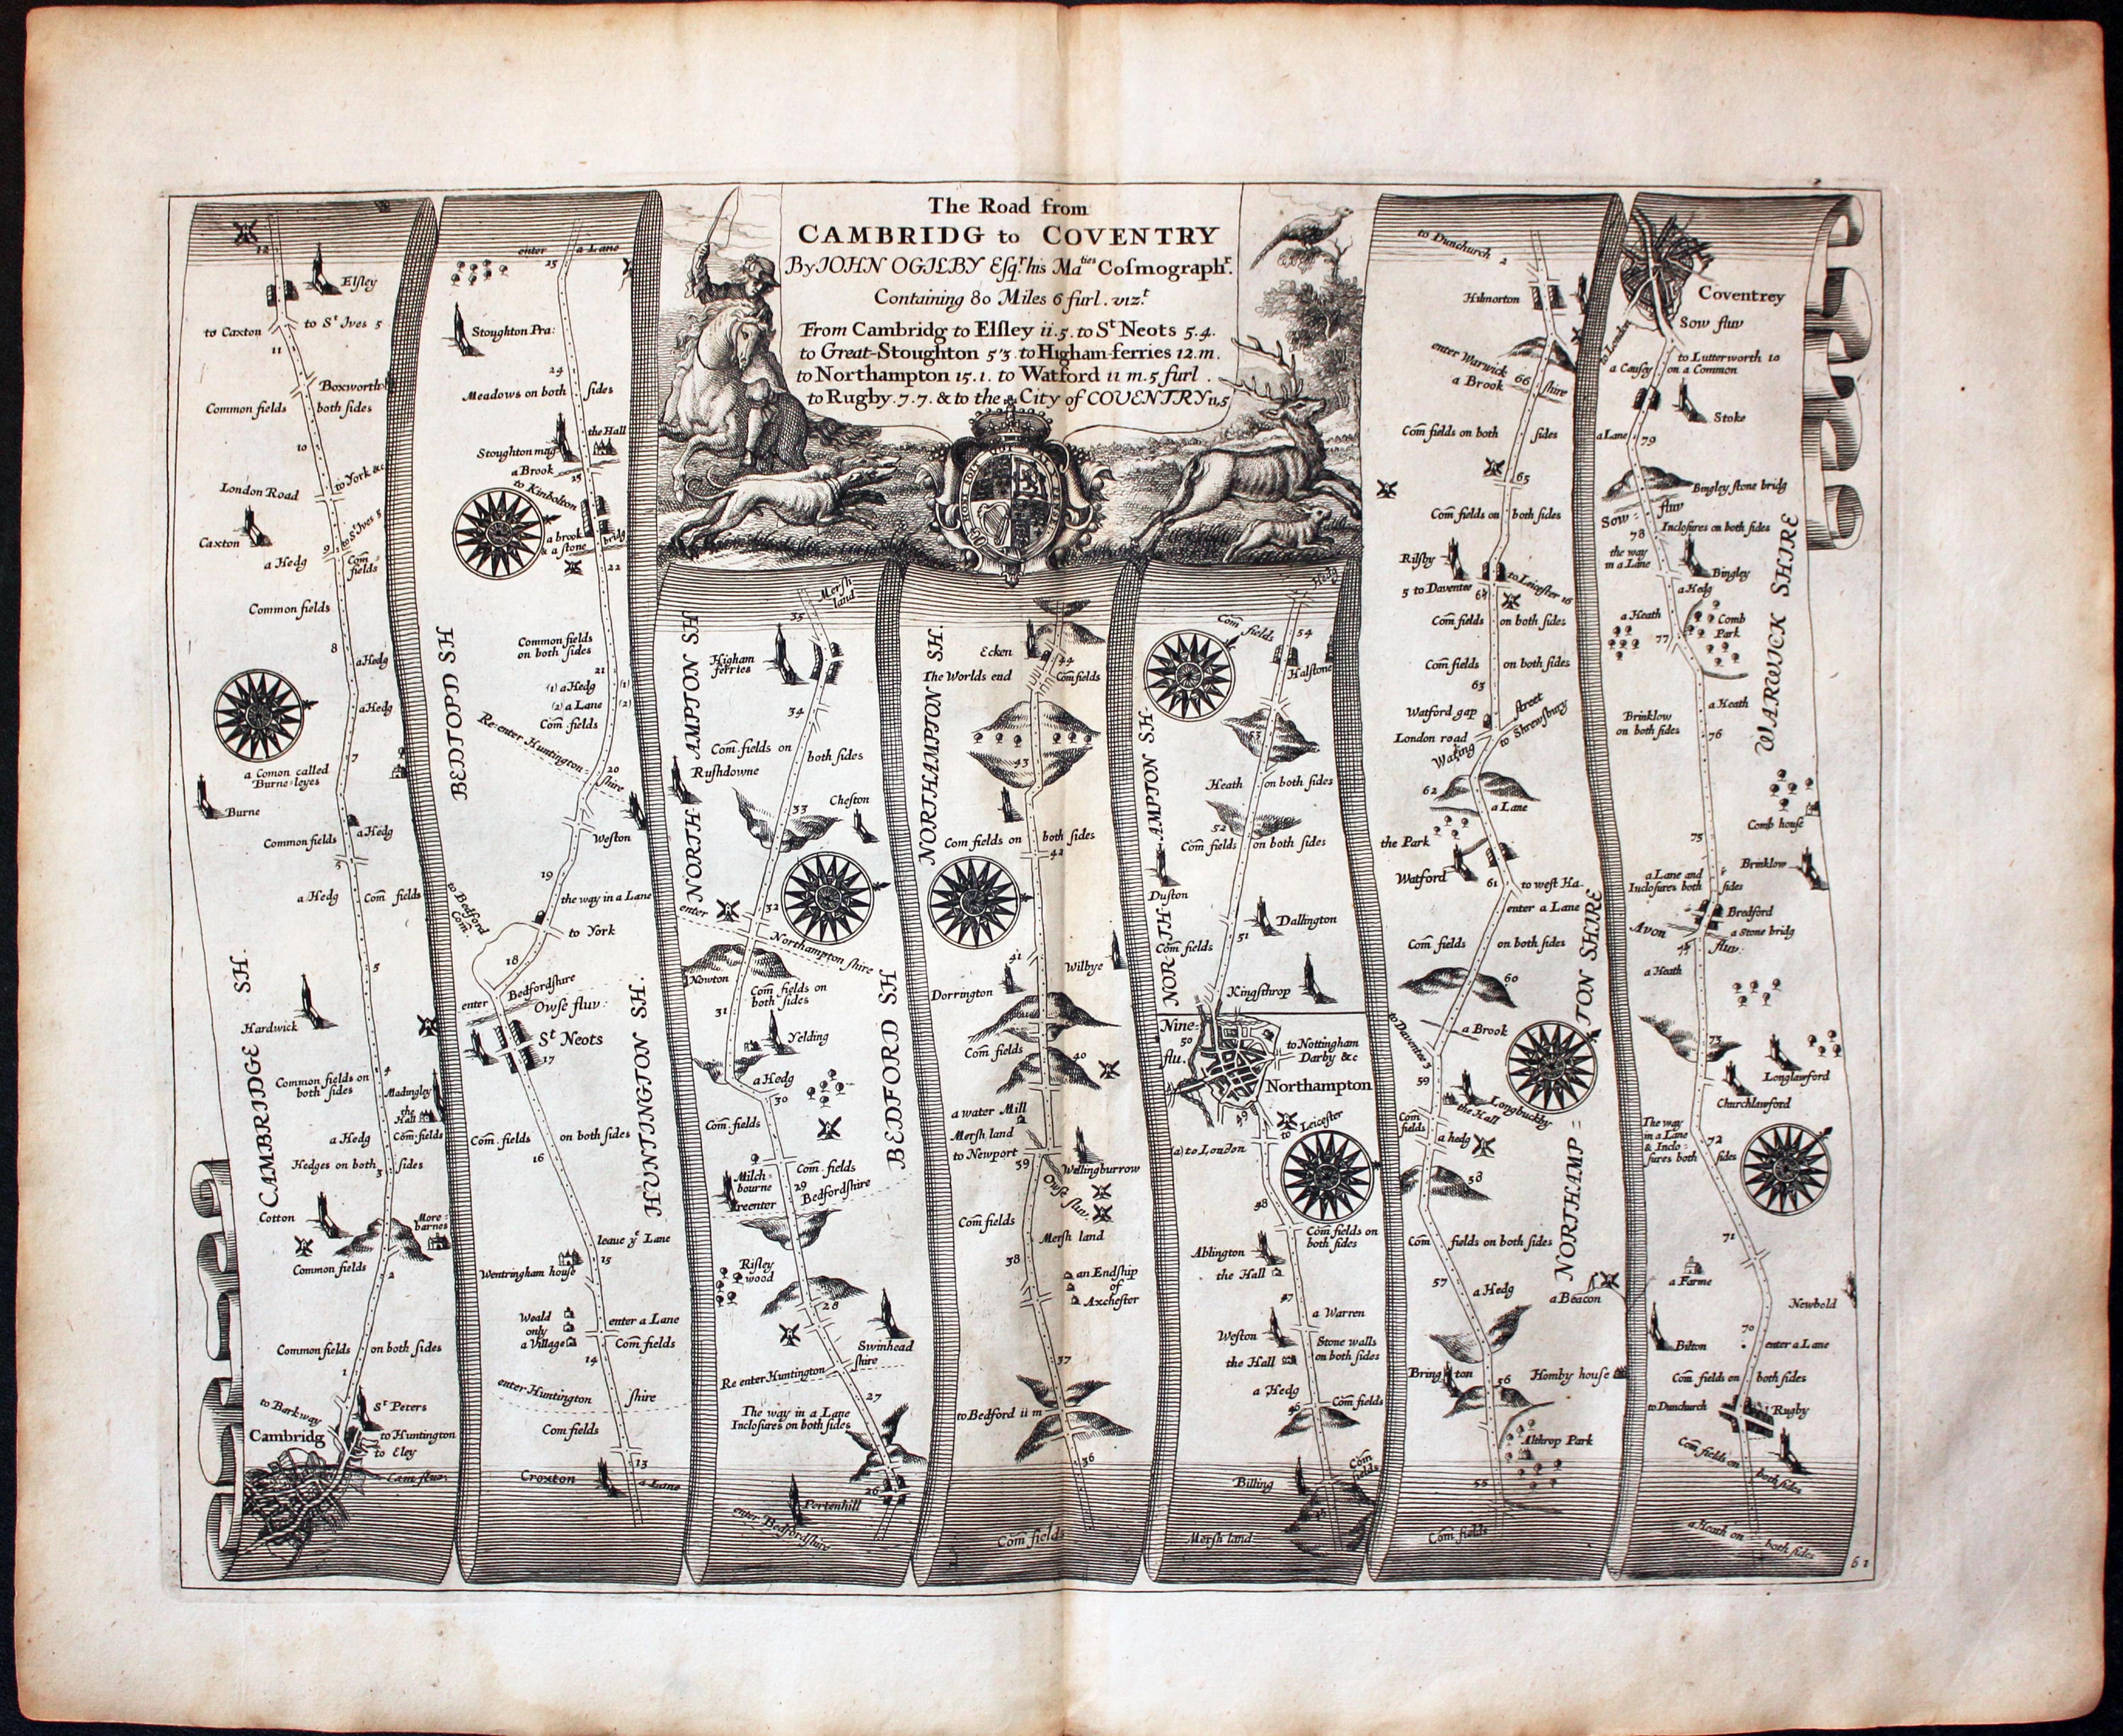 The Road from
CAMBRIDG to COVENTRY
By JOHN OGILBY Esqr. his Maties Cosmographr.
Containing 80 Miles 6 furl. vizt
From Cambridg to Elsley ii.5. to St Neots 5.4.
to Great-Stoughton 5'3. to Higham-ferries 12.m.
to Northampton 15.1. to Watford 11 m.5 furl.
to Rugby.7.7. & to the City of COVENTRY 11,5
12
Elsley
to Caxton
to St Ives 5
11
Boxworth
Common fields both sides
10
to York &c
London Road
to St Ives 5
Caxton
9
a Hedg
Com fields
Common fields
8
a Hedg
a Hedg
7
a Comon called
Burne-leyes
Burne
a Hedg
Common fields
a Hedg
Com fields
5
CAMBRIDGE SH.
Hardwick
4
Common fields on
both sides
Madingley
the
Hall
a Hedg
Com-fields
Hedges on both sides
3
Cotton
More-
barnes
Common fields
2
Common fields on both sides
1
to Barkway
St Peters
Cambridg
to Huntington
to Eley
Cam fluv.
enter a Lane
25
Stoughton Pra:
24
Meadows on both sides
the Hall
Stoughton mag
a Brook
to Kinbolton
a brook
& a stone bridg
22
Common fields
on both sides
21
(1) a Hedg (1)
(2) a Lane (2)
Com fields
BEDFORD SH
Re-enter Huntington-shire
20
Weston
19
to Bedford
Com.
the way in a Lane
to York
18
Bedfordshire
enter
Owse fluv:
St Neots
17
HUNTINGTON SH.
Com. fields on both sides
16
leaue ye Lane
15
Wentringham house
Weald
only
a Village
enter a Lane
Com fields
14
enter Huntington shire
Com fields
13
Croxton
a Lane
Mersh
land
35
Higham
ferries
34
Com. fields on both sides
Rushdowne
33
Cheston
NORTH AMPTON SH
32
enter Northampton shire
Nowton
Com fields on
both sides
31
Yelding
a Hedg
30
Com. fields
BEDFORD SH
Com. fields
Milch-
bourne
29
reenter Bedfordshire
Risley
wood
28
Swinhead
Re enter Huntington shire
27
The way in a Lane
Inclosures on both sides
26
Pertenhill
enter Bedfordshire
Ecken
44
The Worlds end
Com fields
43
NORTHAMPTON SH.
Com fields on both sides
42
41
Wilbye
Dorrington
Com fields
40
a water Mill
Mersh land
to Newport
39
Wellingburrow
Owse fluv.
Com fields
Mersh land
38
an Endship
of
Axchester
37
to Bedford ii m
36
Com fields
Hedg
Com fields
54
Halstone
53
Heath on both sides
52
Com fields on both sides
NORTH-AMPTON SH.
Duston
Dallington
51
Com fields
Kingsthrop
Nine-
50
flu.
to Nottingham
Darby &c
Northampton
49
to Leicester
to London
48
Com fields on
both sides
Ablington
the Hall
47
a Warren
Weston
Stone walls
on both sides
the Hall
a Hedg
46
Com fields
Billing
Com
fields
Mersh land
to Dunchurch 2
Hilmorton
enter Warwick shire
a Brook
66
Com fields on both sides
65
Com fields on both sides
Rilsby
to Leicester 16
5 to Daventree
64
Com fields on both sides
Com fields on both sides
63
Watford gap
London road
Wating street
to Shrewsbury
62
a Lane
the Park
Watford
61
to west Ha-
enter a Lane
Com fields on both sides
60
to Daventree 5
a Brook
59
Longbuckby
the Hall
Com
fields
a hedg
58
NORTHAMP=TON SHIRE
Com fields on both sides
57
a Hedg
a Beacon
Bring ton
56
Homby house
Althrop Park
55
Com fields
Coventrey
Sow fluv
to London
to Lutterworth 10
a Causey
on a Common
Stoke
a Lane
79
Bingley stone bridg
Sow = fluv
Inclosures on both sides
78
the way
in a Lane
Bingley
a Hedg
a Heath
Comb
Park
77
WARWICK SHIRE
a Heath
Brinklow
on both sides
76
Comb house
75
Brinklow
a Lane and
Inclosures both sides
Bredford
a Stone bridg
Avon fluv:
74
a Heath
73
Longlawford
Churchlawford
The way
in a Lane
& Inclo-
sures both sides
72
71
a Farme
Newbold
70
Bilton
enter a Lane
Com fields on both sides
to Dunchurch
Rugby
Com fields on both sides
a Heath on both sides
61